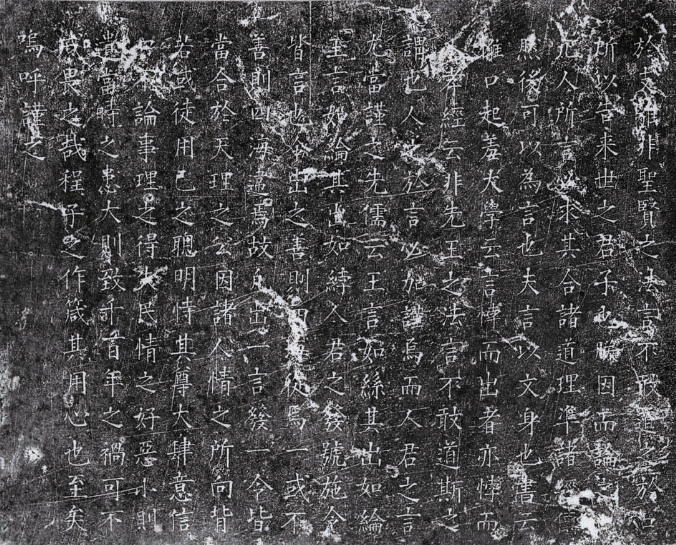 於非聖賢之法言不敢道之於口
所以告来世之君子也朕因而論之
凡人所言必求其合諸道理準諸經傳
然後可以為言也夫言以文身也書云
惟口起羞大學云言悖而出者亦悖而
入孝經云非先王之法言不敢道斯之
謂也人之於言必加謹焉而人君之言
尤當謹之先儒云王言如絲其出如綸
王言如綸其出如綍人君之發號施令
皆言也令出之善則四海從焉一或不
善則四海違焉故凡出一言發一令皆
當合於天理之公因諸人情之所向背
若或徒用己之聰明恃其尊大肆意信
口不論事理之得失民情之好惡小則
當時之患大則致千百年之禍可不
畏之哉程子之作箴其用心也至矣
嗚呼謹之